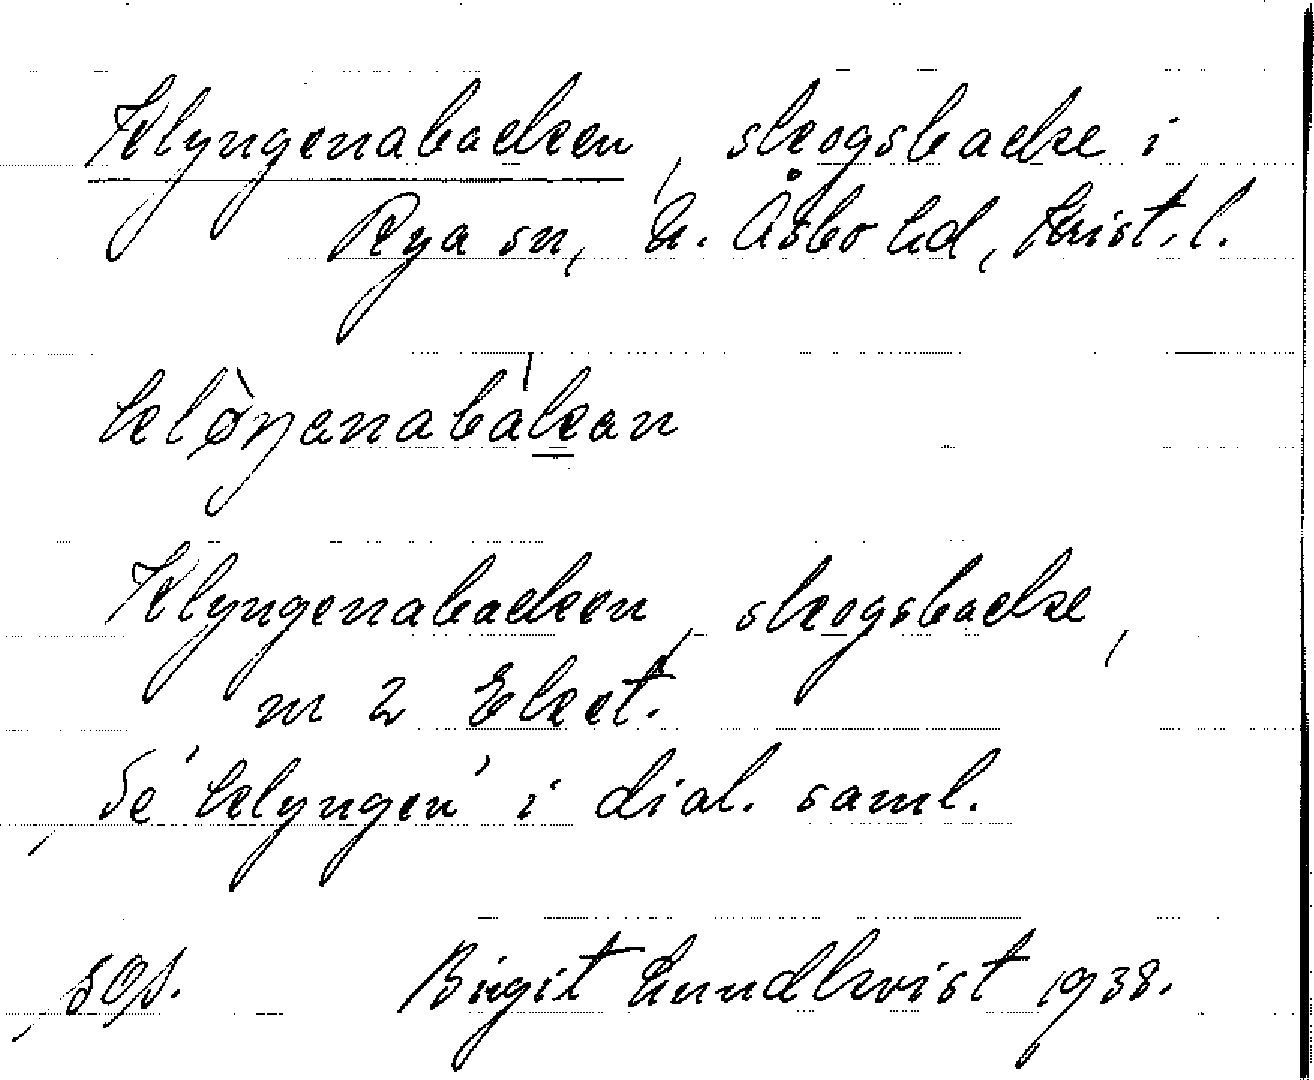 Klyngenabacken, skogsbacke i
Rya sn, N. Åsbo hd, Krist. l.
klø̀ŋanabàkan
Klyngenabacken, skogsbacke,
nr 2 Eket.
Se 'klyngen' i dial. saml.
Birgit Lundkvist 1938.